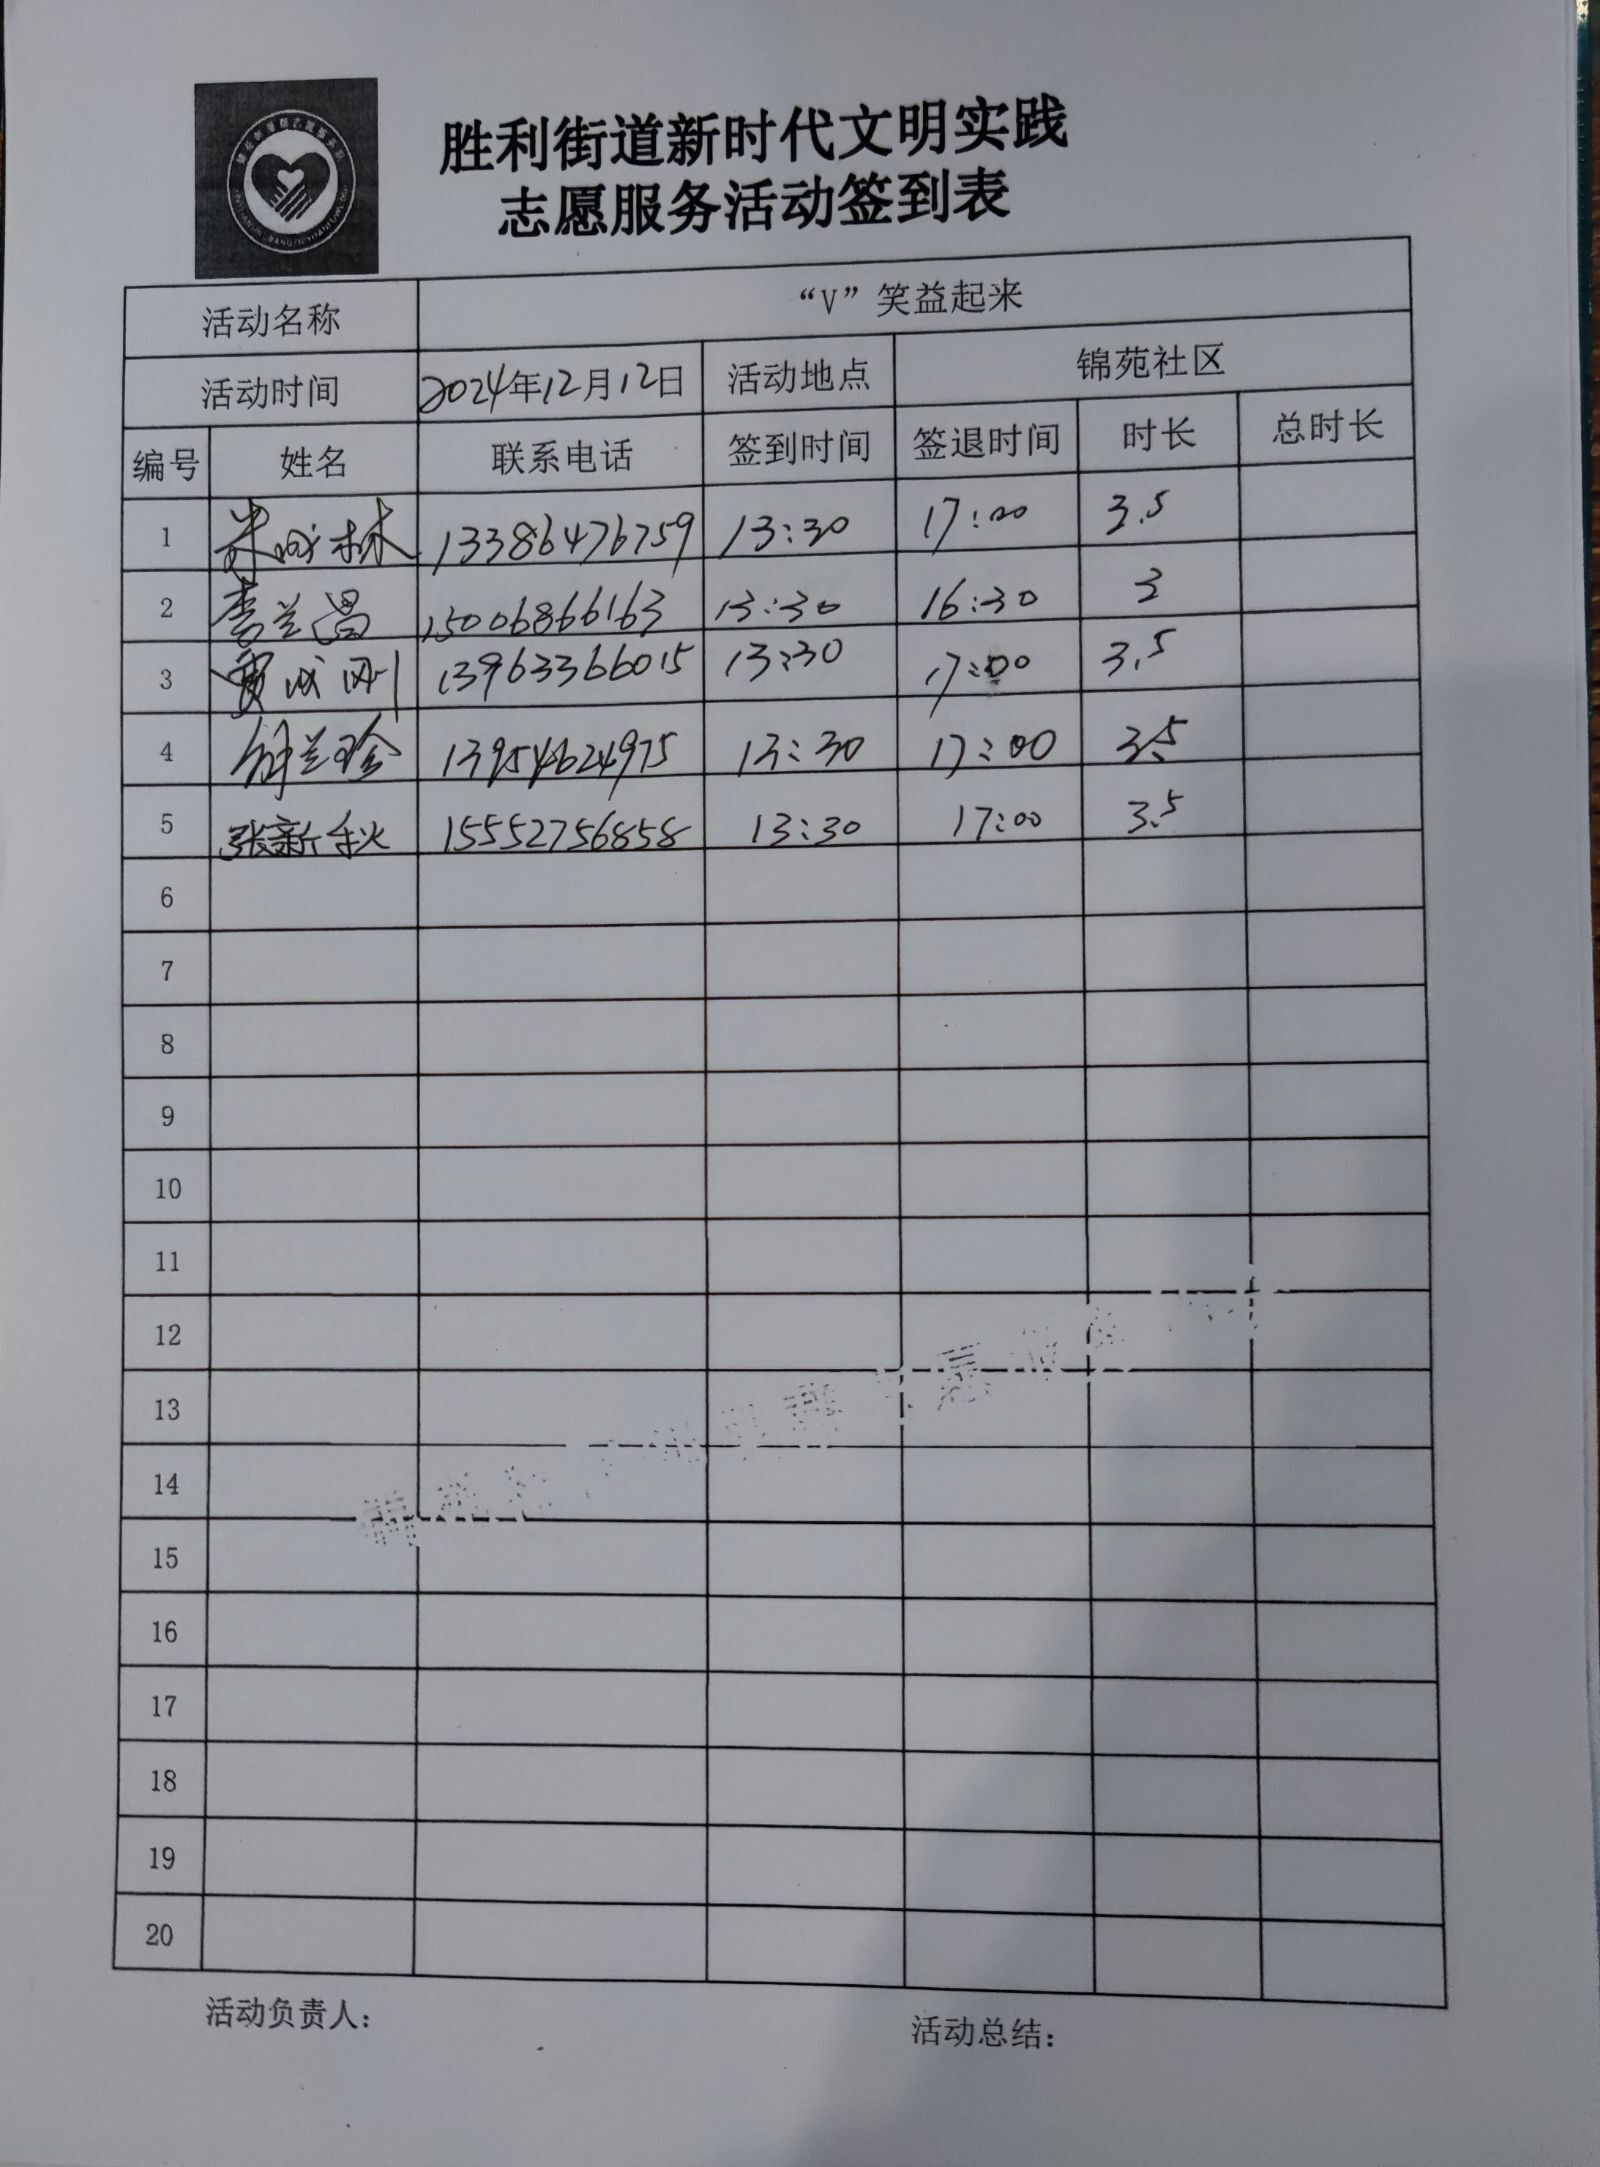 胜利街道新时代文明实践
志愿服务活动签到表
活动名称 “V”笑益起来
活动时间 2024年12月12日 活动地点 锦苑社区
编号 姓名 联系电话 签到时间 签退时间 时长 总时长
1 13386476759 13:30 17:00 3.5
2 李兰昌 15006866163 13:30 16:30 3
3 贾成刚 13963366015 13:30 17:00 3.5
4 解兰珍 13954624975 13:30 17:00 3.5
5 张新秋 15552756858 13:30 17:00 3.5
6
7
8
9
10
11
12
13
14
15
16
17
18
19
20
活动负责人： 活动总结：